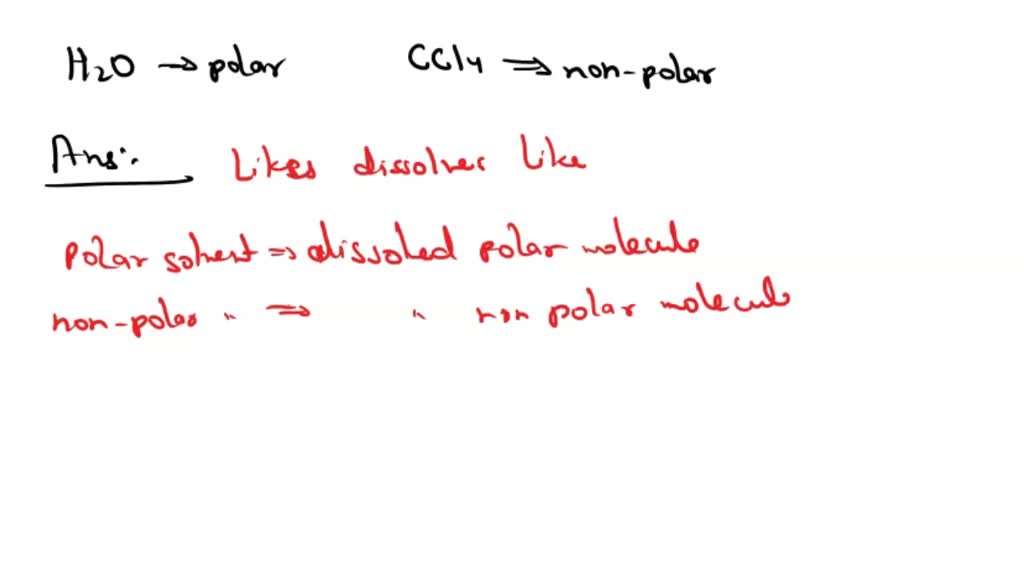 H2O → polar CCl4 ⇒ non-polar
Ans:. Likes dissolves like
polar solvent ⇒ dissolved polar molecule
non-polar " ⇒ " non polar molecule